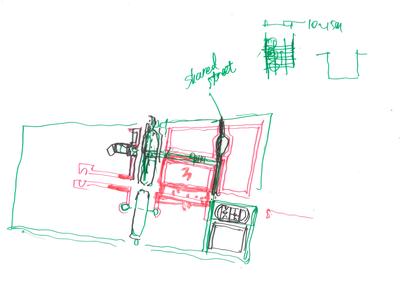 10-15M
shared
street
3